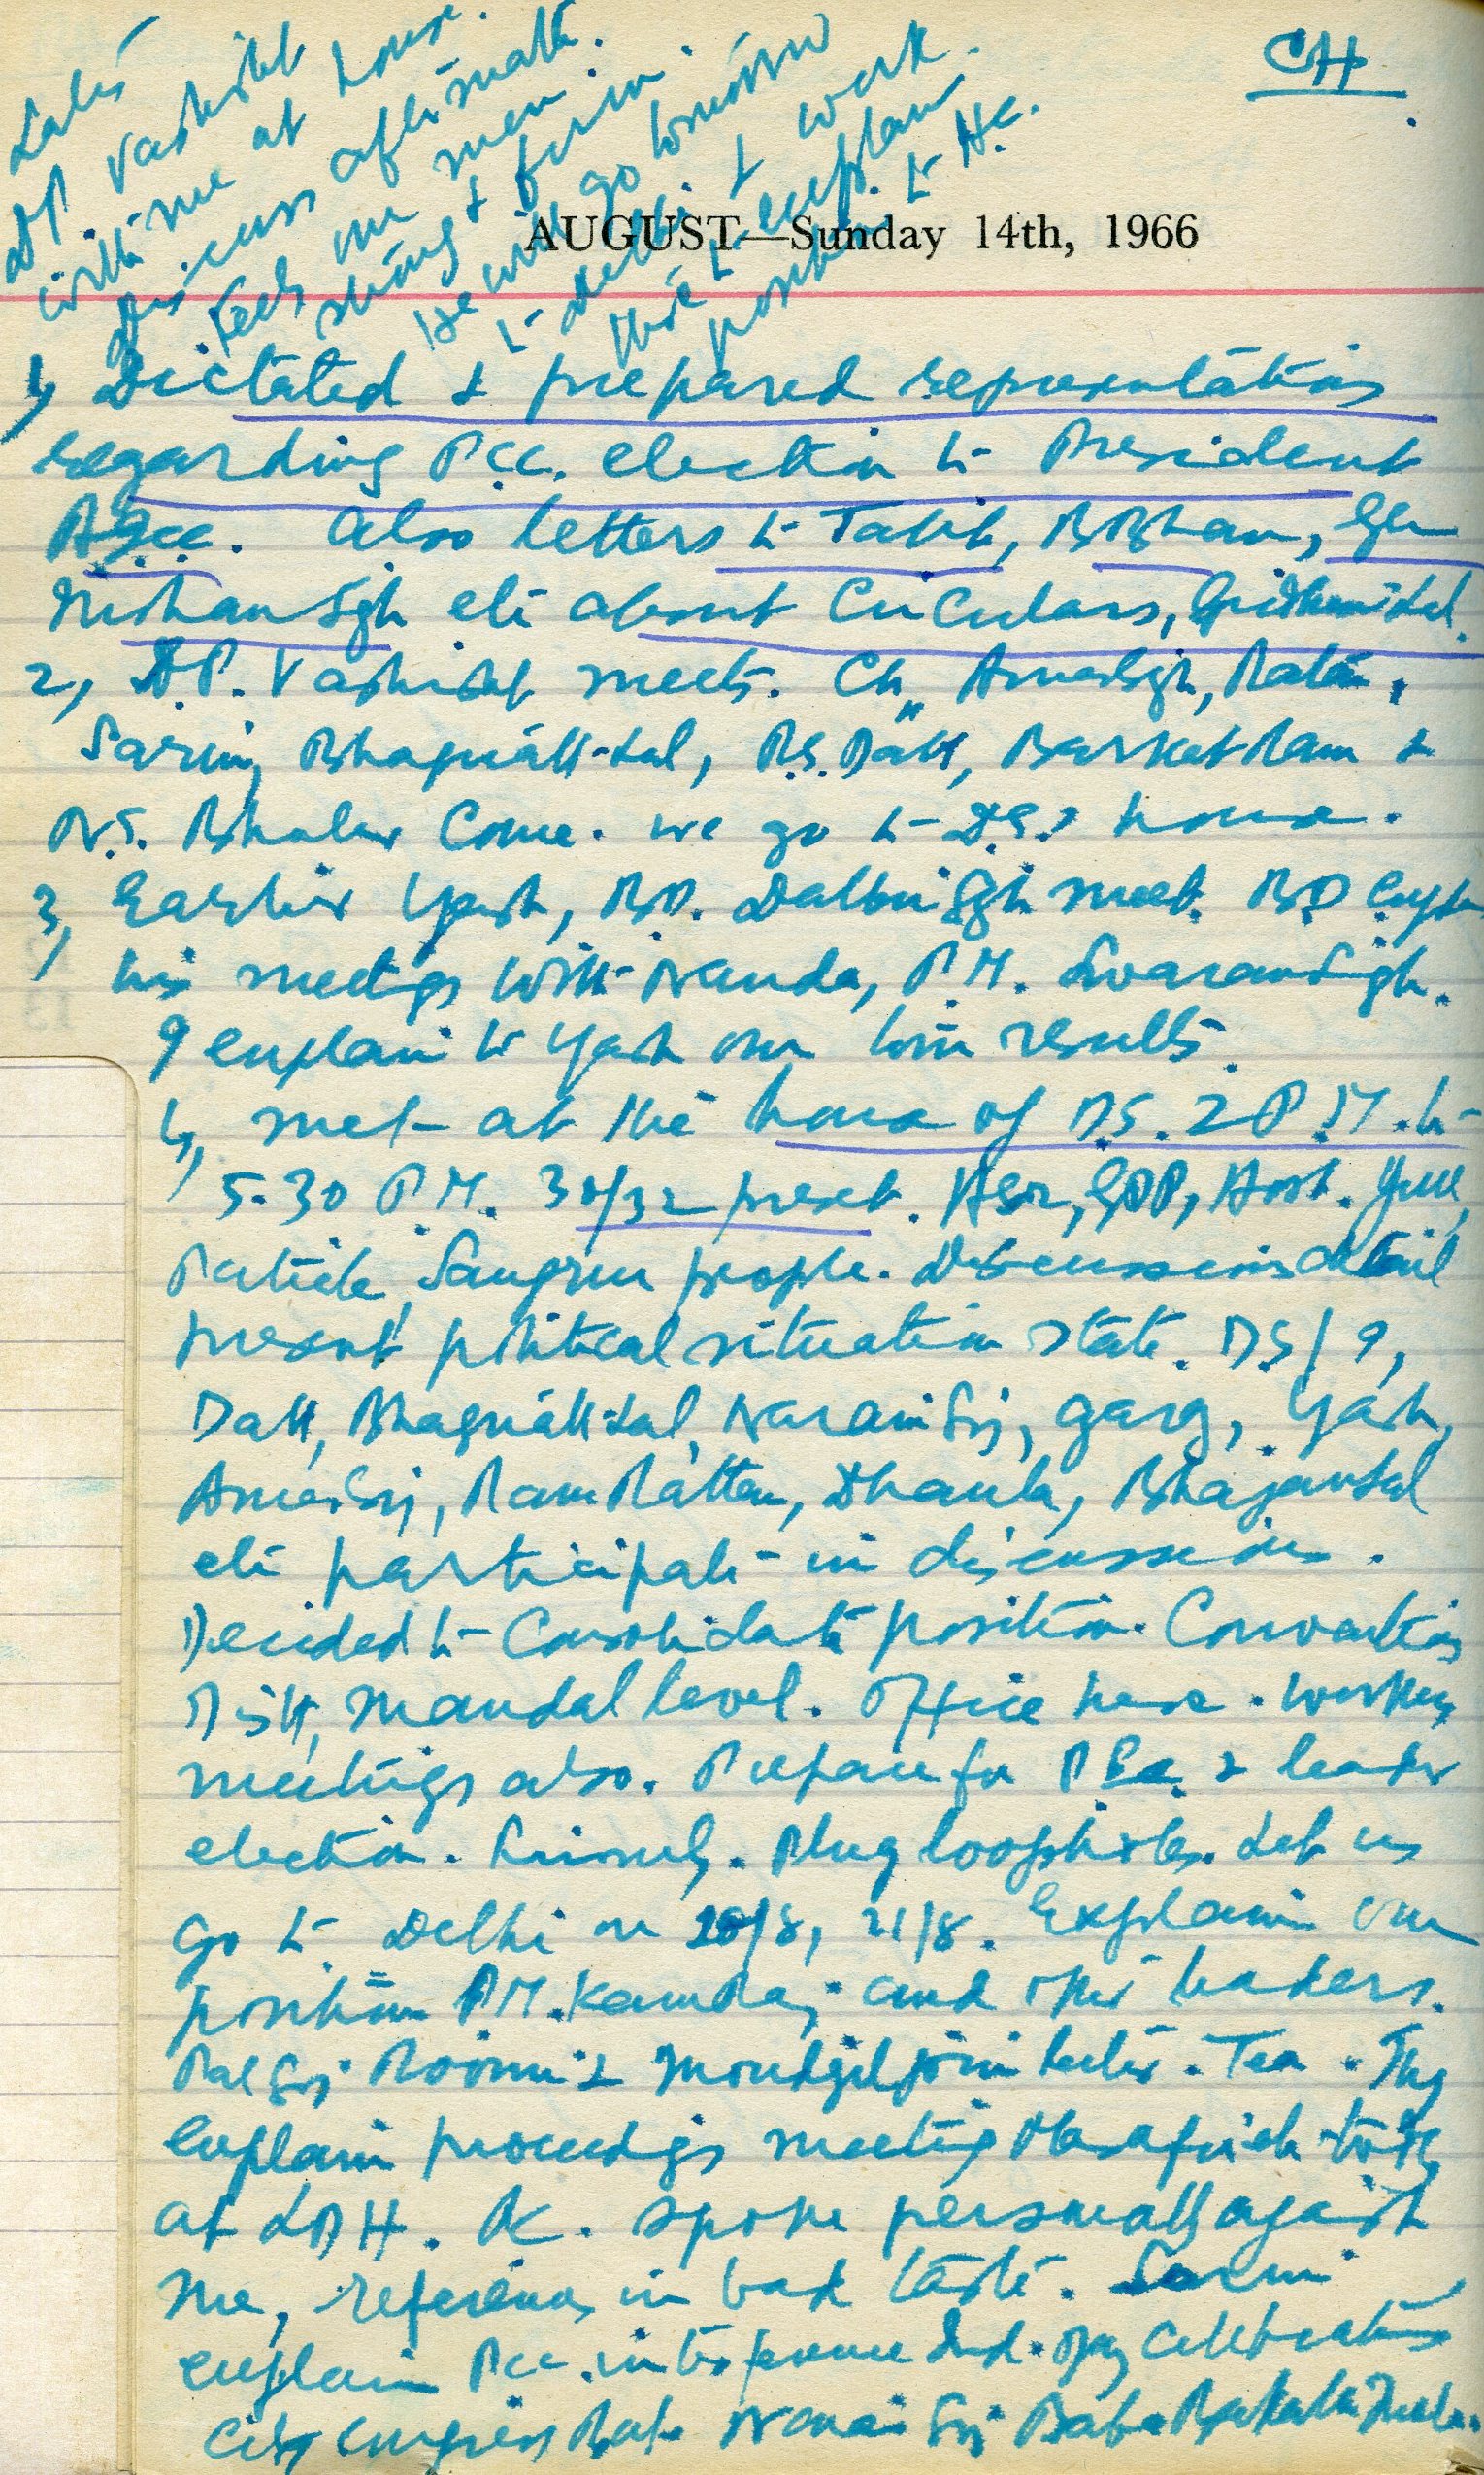 CH
Later
DP Vashisht
with me at house.
Discuss aftermath.
Feels our men
strong & firm.
He will go tomorrow
to Delhi & work
there to explain
position to HC.
AUGUST—Sunday 14th, 1966
1, Dictated & prepared representations
regarding P.C.C. election to President
AICC. Also letters to B Bhan, Gen
Mohan Sgh etc about Circulars,
2, D.P. Vashisht meets. Ch. Amar Sgh,
Sarin, Bhagirath Lal, R.S. Datt, Barket Ram &
N.S. come. We go to D.S.'s house.
3, Earlier Yash, B.D. Dalbir Sgh meet. BD
his meetings with Nanda, P.M. Swaran Singh.
I explain to Yash our results.
4, met at the house of D.S. 2 P.M. to
5.30 P.M. 30/32 present. ASR, GDP,
Patiala, Sangrur people. Discussions detail
present political situation state. DS/I,
Datt, Bhagirath Lal, Narain Sgh, Garg, Yash,
Amar Sgh, Ram Rattan, Bhajan Lal
etc participate in discussions.
Decided to Consolidate position. Convention
Distt, mandal level. Office here. Workers
meetings also. Prepare for P.C.C. & leader
election. Seriously. Plug loopholes. Let us
go to Delhi on 20/8, 21/8. Explain our
position P.M. Kamraj and other leaders.
& Moudgil join later. Tea. They
explain proceedings meeting
at LDH. spoke personally against
me, references in bad taste. Sarin
explain PCC. interference Ind. Day celebrations
City Congress